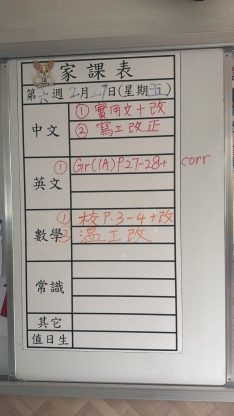 家課表
第六週 2月27日(星期五)
中文
① 實用文+改
② 寫工改正
英文
① Gr(1A) P27-28+ corr
數學
① 校P.3-4+改
② 溫工改
常識
其它
值日生